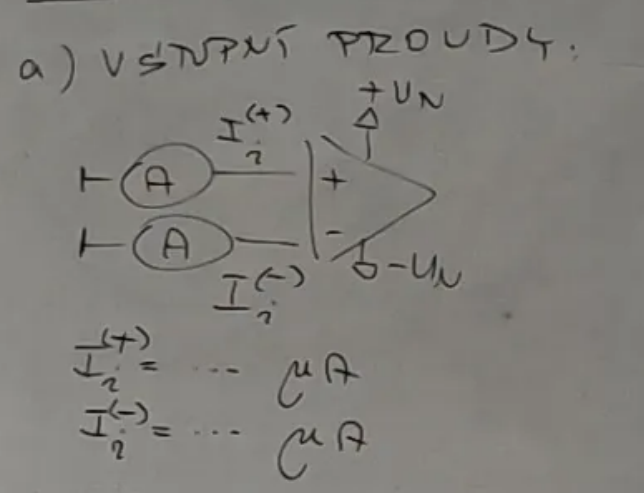 a) VSTUPNÍ PROUDY:
+UN
Ii(+)
A
+
A
-
-UN
Ii(-)
Ii(+) = ... μA
Ii(-) = ... μA